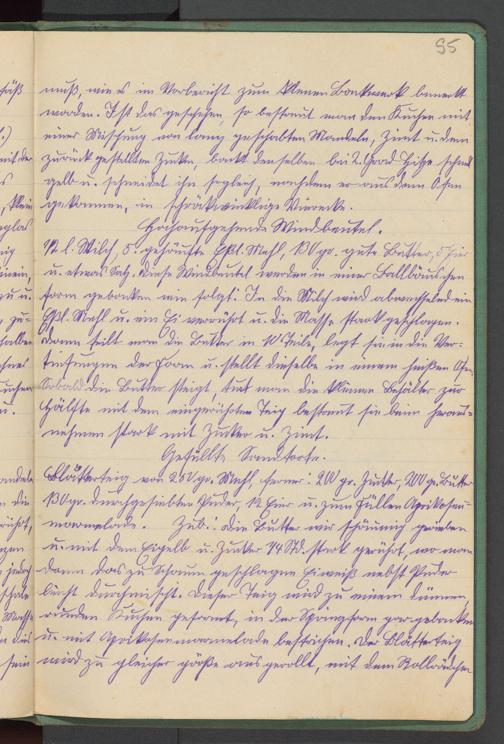 95
muß, wie es im Vorbericht zum kleinen Backwerk bemerkt
worden. Ist das geschehen, so bestreut man den Kuchen mit
einer Mischung von lang geschabten Mandeln, Zimt u. dem
zurück gestellten Zucker, backt denselben bei 2. Grad Hitze schnell
gelb u. schneidet ihn sogleich, nachdem er aus dem Ofen
gekommen, in schrägwinklige Vierecke.
Hochaufgehende Windbeutel.
1/2 l. Milch, 5. gehäufte Eßl. Mehl, 130 gr. gute Butter, 5 Eier
u. etwas Salz. Diese Windbeutel werden in einer
form gebacken wie folgt. In die Milch wird abwechselnd ein
Eßl. Mehl u. ein Ei verrührt u. die Masse stark geschlagen.
Dann teilt man die Butter in 10 Teile, legt sie in die Ver-
tiefungen der Form u. stellt dieselbe in einem heißen Ofen.
Sobald die Butter steigt, tut man die kleinen Behälter zur
Hälfte mit dem eingerührten Teig bestreut sie beim heraus-
nehmen stark mit Zucker u. Zimt.
Gefüllte Sandtorte.
Blätterteig von 250 gr. Mehl, ferner: 200 gr. Zucker, 200 gr. Butter
130 gr. durchgesiebten Puder, 12 Eier u. zum Füllen Aprikosen-
marmelade. Zub.: Die Butter wir schäumig gerieben
u. mit dem Eigelb u. Zucker 1/4 Std. stark gerührt, wo man
dann das zu Schaum geschlagene Eiweiß nebst Puder
leicht durchmischt. Dieser Teig wird zu einem dünnen
runden Kuchen geformt, in der Springform gar gebacken
u. mit Aprikosenmarmelade bestrichen. Der Blätterteig
wird zu gleicher größe aus gerollt, mit dem Rollrädchen